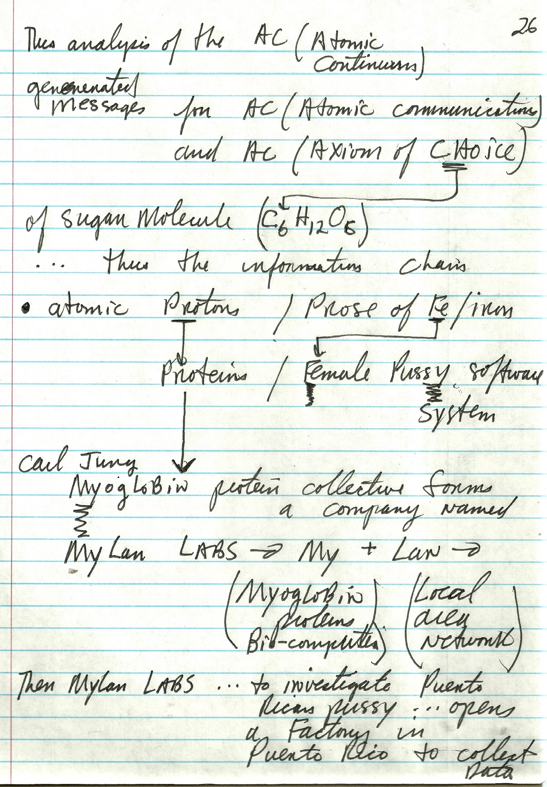 26
Thus analysis of the AC (Atomic
Continuum)
genenenated
messages for AC (Atomic communication)
and AC (Axiom of CHoice)
of sugar Molecule (C6H12O6)
... thus the information chain
• atomic Protons / Prose of Fe/iron
Proteins / Female Pussy software
System
Carl Jung
MyogloBin protein collective forms
a company named
MyLan LABS → My + Lan →
(MyogloBin (Local
proteins area
Bio-computer) Network)
Then Mylan LABS ... to investigate Puerto
Rican pussy ... opens
a Factory in
Puerto Rico to collect
Data